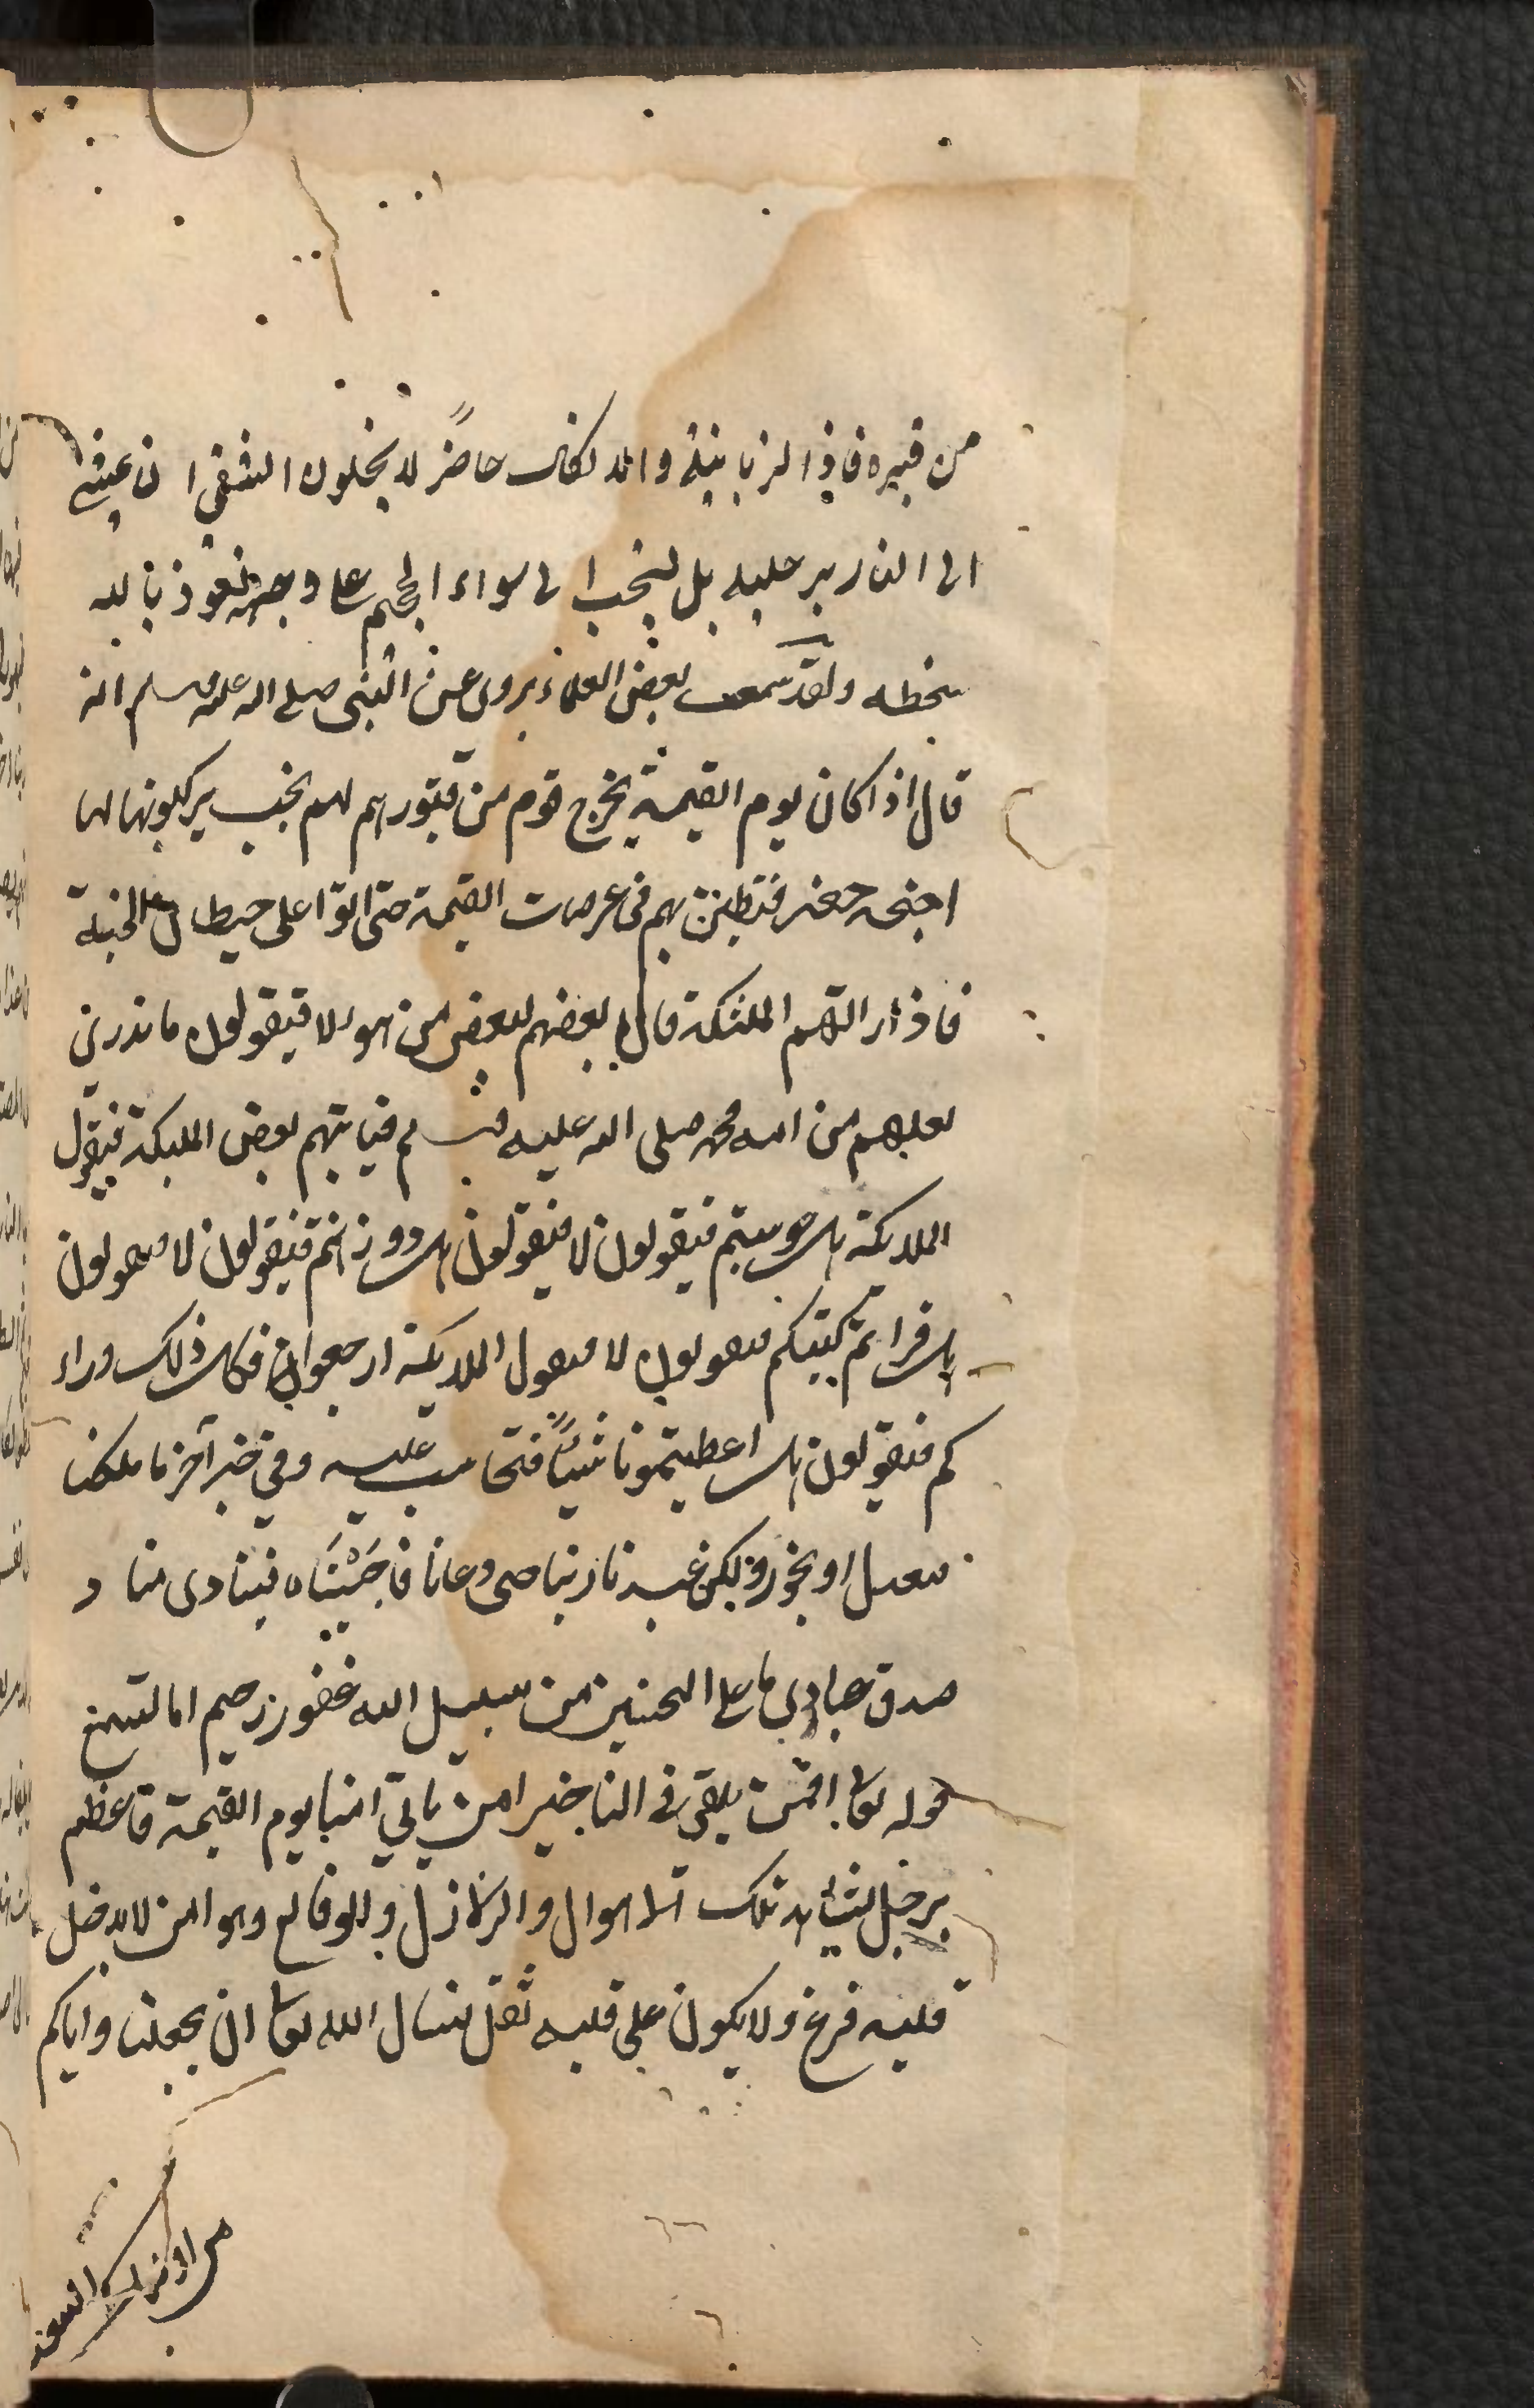 من قبره فاذا الزبانية والانكال حاضر لا يخلون الشقي ان عيشى
الى النار برجليه بل ليجب الى سواء الجحيم على وجهه نعوذ بالله
بخطه ولقد سمعت بعض العلماء يروى عن النبى صلى الله عليه وسلم انه
قال اذا كان يوم القيمة يخرج قوم من قبورهم لهم نجب يركبونها لها
اجنحه خضر فتطير بهم فى عرصات القيمة حتى اتوا على حيطان الجنة
فاذا راتهم الملئكة قال بعضهم لبعض من هولا فيقولون ما ندرى
لعلهم من امه محمد صلى الله عليه وسلم فياتيهم بعض الملئكة فيقول
الملايكة هل حوسبتم فيقولون لا فيقولون هل ووزنتم فيقولون لا فيقولون
هل قراتم كتبكم فيقولون لا فيقول الملايكة ارجعوا فكل ذلك وراء
كم فيقولون هل اعطيتمونا شيئًا فنحاسب عليه وفي خبر آخر ما ملكنا
فنعدل او نجور ولكن عبدنا ربنا حى دعانا فاجبناه فينادى مناد
صدق عبادى ما على المحسنين من سبيل الله غفور رحيم اما تسمع
قوله تعا افمن يلقى فى النا خير امن ياتي امنا يوم القيمة فاعظم
برجل يشاهد تلك الاهوال والزلازل والوقايع وهو امن لا يدخل
قلبه فزع ولا يكون على قلبه ثقل نسال الله تعا ان يجعلنا واياكم